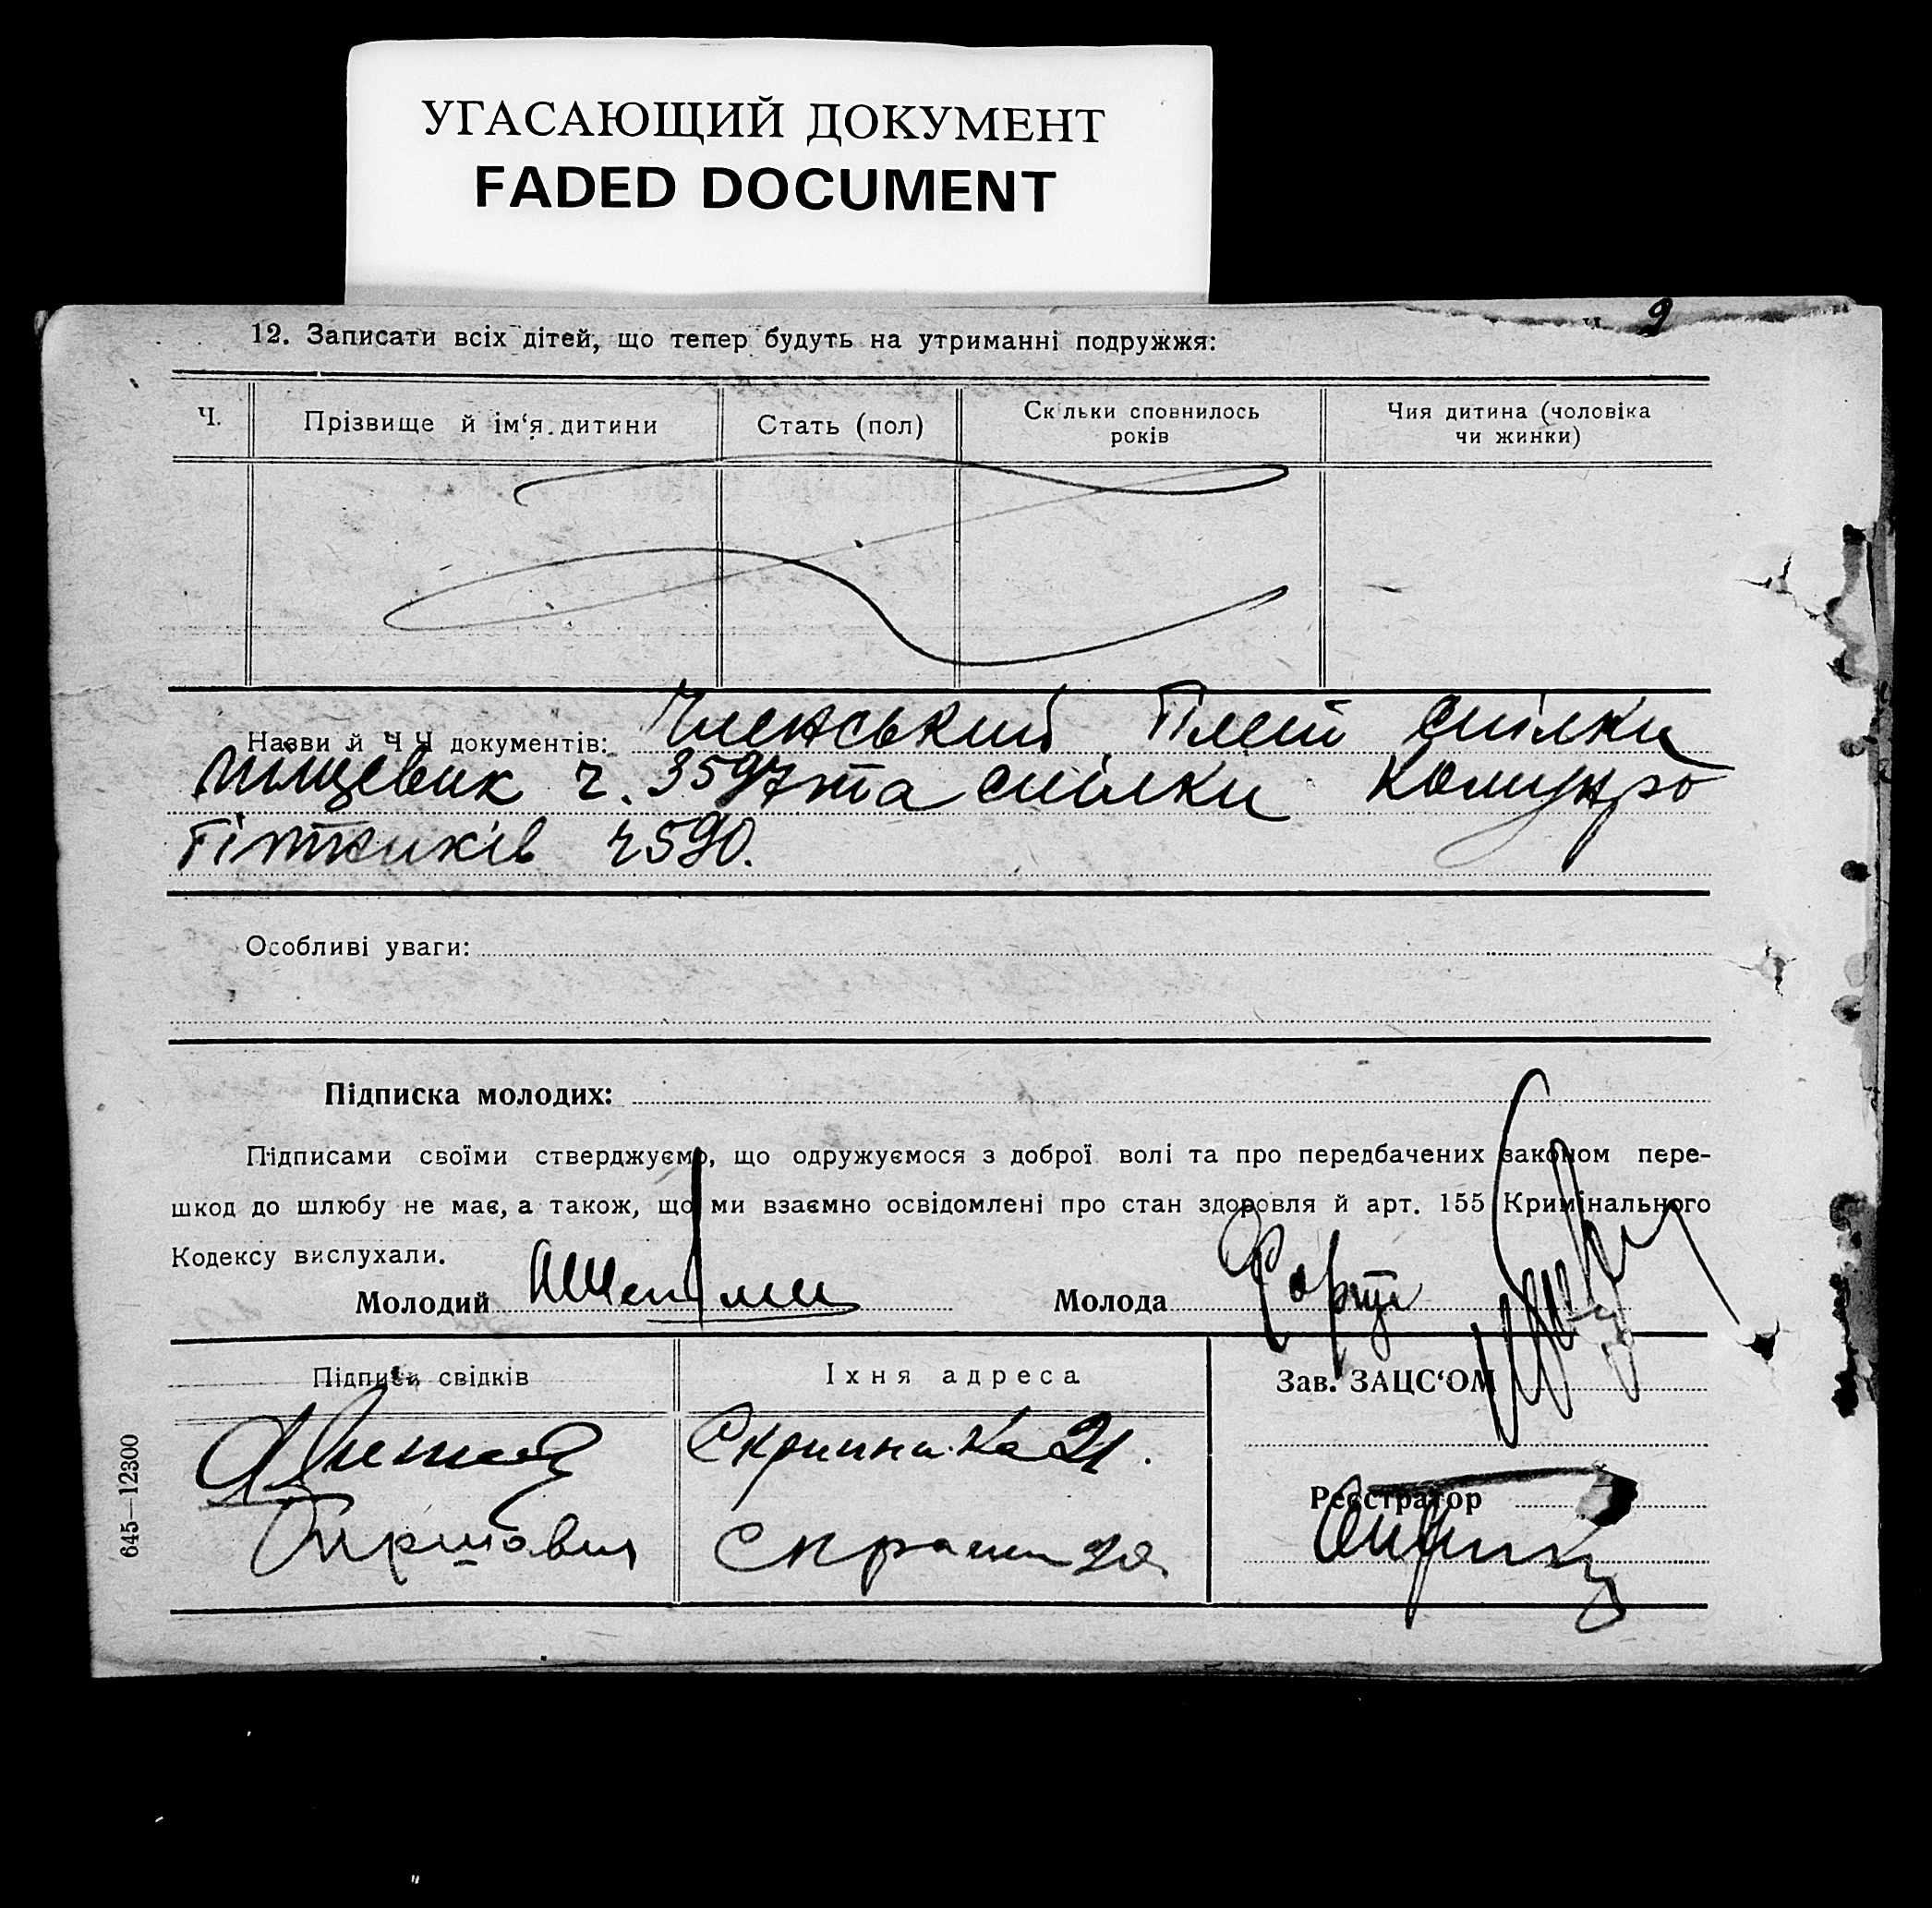 УГАСАЮЩИЙ ДОКУМЕНТ
FADED DOCUMENT
9
12. Записати всіх дітей, що тепер будуть на утриманні подружжя:
Ч.
Прізвище й ім‘я дитини
Стать (пол)
Скільки сповнилось
років
Чия дитина (чоловіка
чи жинки)
Назви й Ч Ч документів: Членський білет спілки
ч. 3597 та спілки
ч 590.
Особливі уваги:
Підписка молодих:
Підписами своїми стверджуємо, що одружуємося з доброї волі та про передбачених законом пере-
шкод до шлюбу не має, а також, що ми взаємно освідомлені про стан здоровля й арт. 155 Кримінального
Кодексу вислухали.
Молодий
Молода
Підписи свідків
Іхня адреса
Зав. ЗАЦС‘ОМ
21.
Реєстратор
645—12300